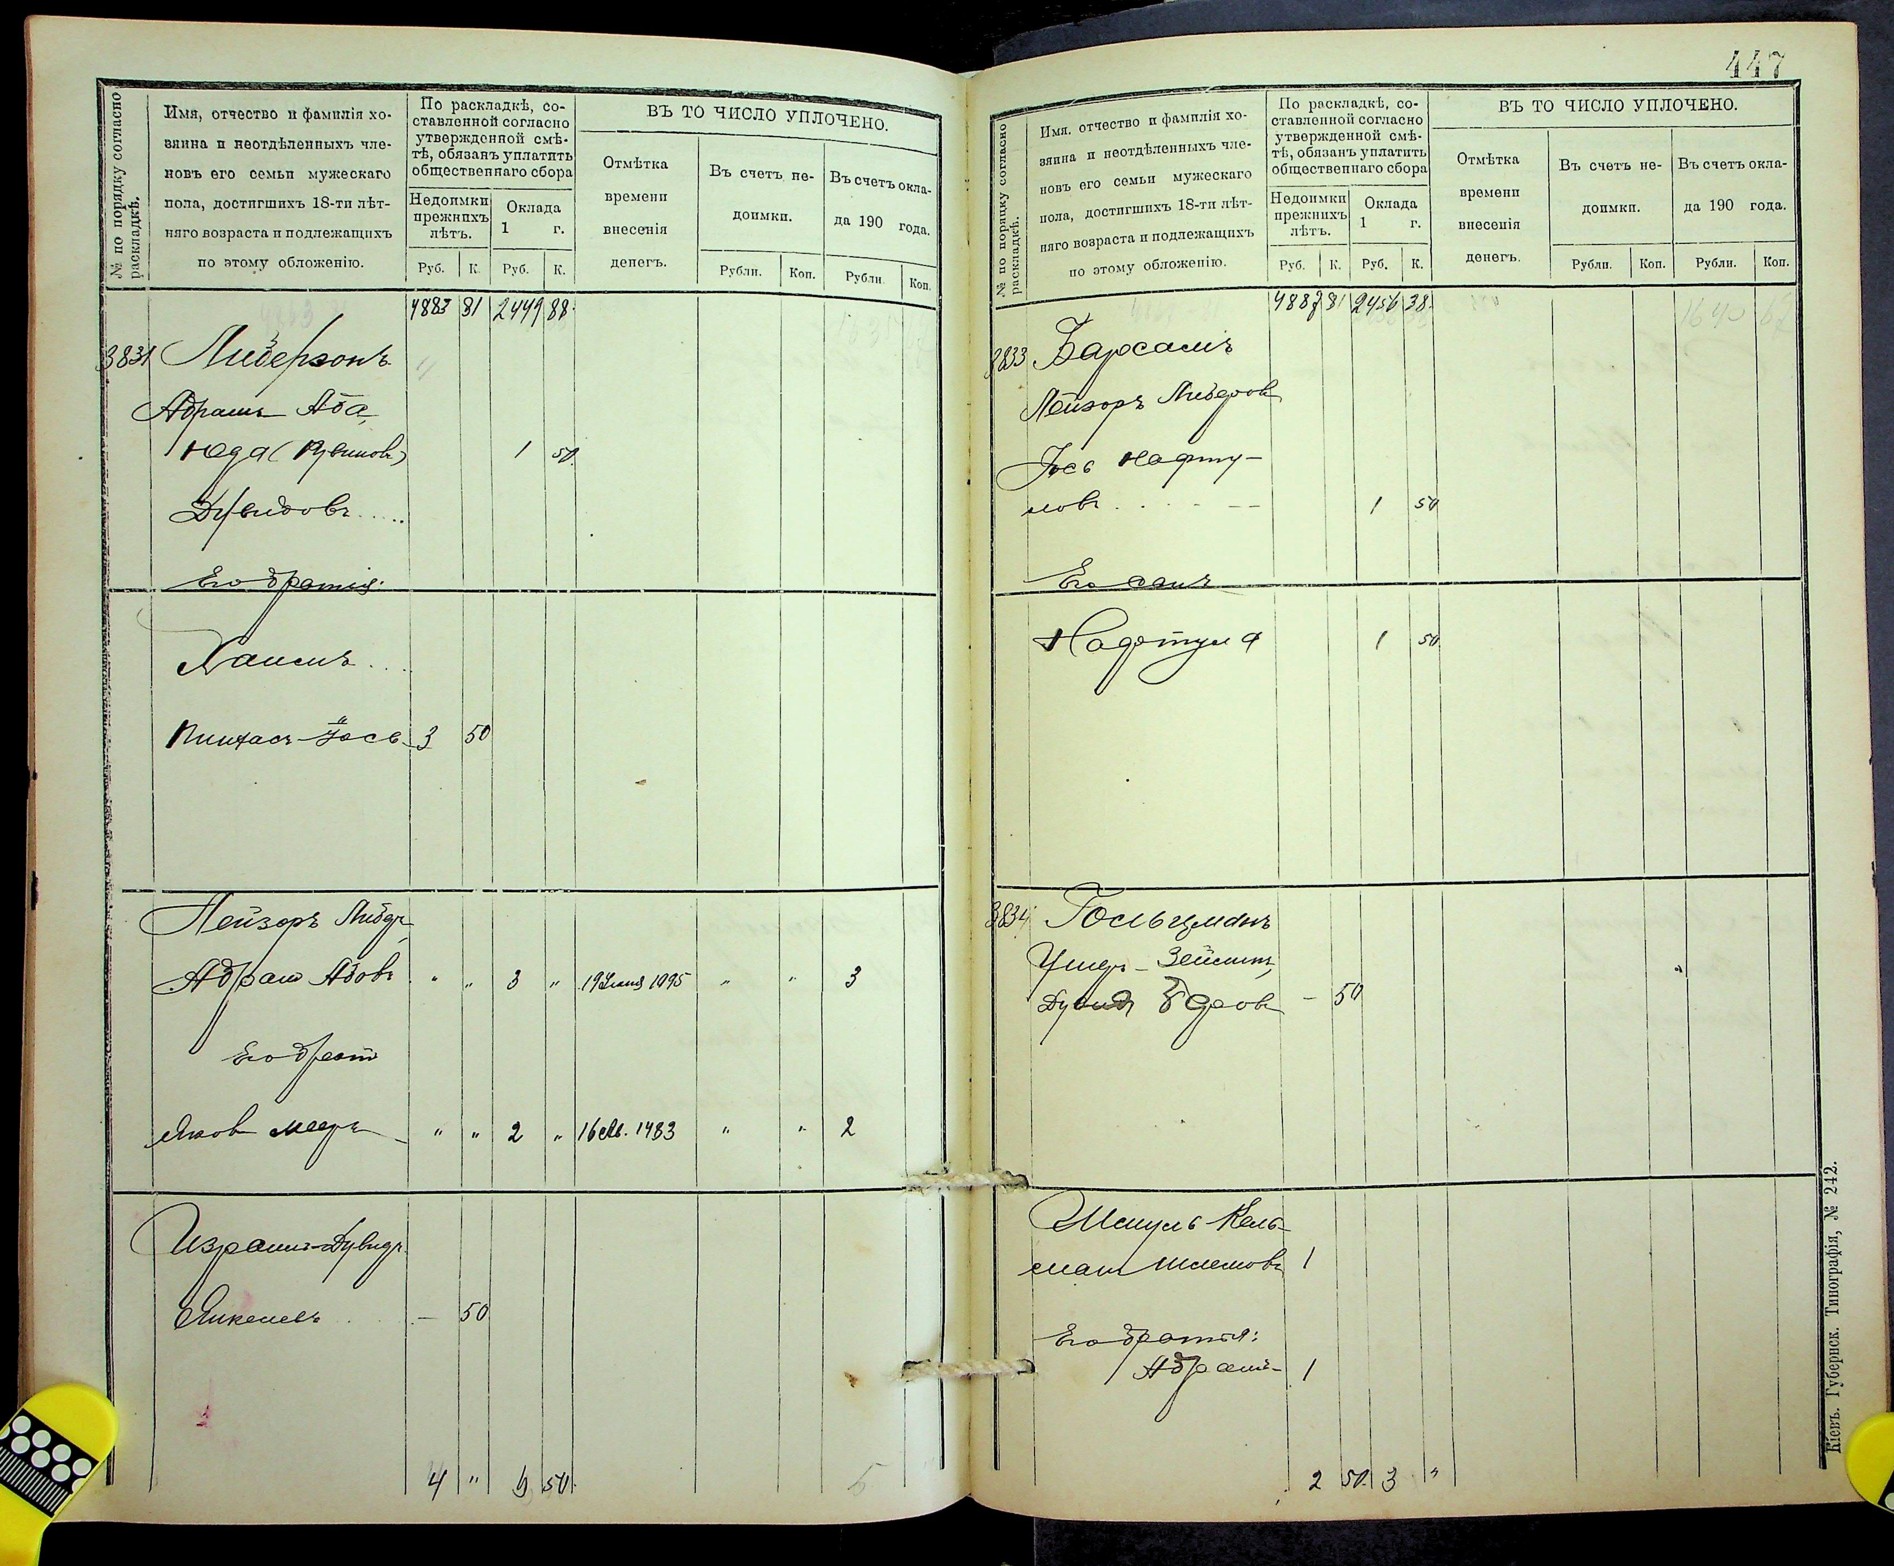 447
№ по порядку согласно раскладкѣ.
Имя, отчество и фамилія хо-
зяина и неотдѣленныхъ чле-
новъ его семьи мужескаго
пола, достигшихъ 18-ти лѣт-
няго возраста и подлежащихъ
по этому обложенію.
По раскладкѣ, со-
ставленной согласно
утвержденной смѣ-
тѣ, обязанъ уплатить
общественнаго сбора
Недоимки
прежнихъ
лѣтъ.
Оклада
1 г.
Руб. К. Руб. К.
ВЪ ТО ЧИСЛО УПЛОЧЕНО.
Отмѣтка
времени
внесенія
денегъ.
Въ счетъ не-
доимки.
Рубли. Коп.
Въ счетъ окла-
да 190 года.
Рубли. Коп.
4883 81 2449 88
3831 Либерзонъ
Абрамъ Аба,
Юда (Рувинов)
Дувидовъ 1 50
Его братія:
Хаимъ
Пинхасъ-Іось 3 50
Лейзоръ Либер
Абрам Абовъ " " 3 " 19 1895 " " 3
Его братъ
Яков Меер " " 2 " 16 1483 " " 2
Израиль-Дувидъ
Янкелевъ — 50
4 " 5 50
5
№ по порядку согласно раскладкѣ.
Имя. отчество и фамилія хо-
зяина и неотдѣленныхъ чле-
новъ его семьи мужескаго
пола, достигшихъ 18-ти лѣт-
няго возраста и подлежащихъ
по этому обложенію.
По раскладкѣ, со-
ставленной согласно
утвержденной смѣ-
тѣ, обязанъ уплатить
общественнаго сбора
Недоимки
прежнихъ
лѣтъ.
Оклада
1 г.
Руб. К. Руб. К.
ВЪ ТО ЧИСЛО УПЛОЧЕНО.
Отмѣтка
времени
внесенія
денегъ.
Въ счетъ не-
доимки.
Рубли. Коп.
Въ счетъ окла-
да 190 года.
Рубли. Коп.
4887 81 2456 38
3833 Барсамъ
Лейзоръ Либеров
Іось Нафту-
ловъ 1 50
Его сынъ
Нафтула 1 50
3834 Гольцманъ
Ушеръ-Зейлик,
Дувид — 50
Шмуль Кель-
ман Шлемовъ 1
Его братья:
Абрамъ 1
2 50 3 "
Кіевъ. Губернск. Типографія, № 242.